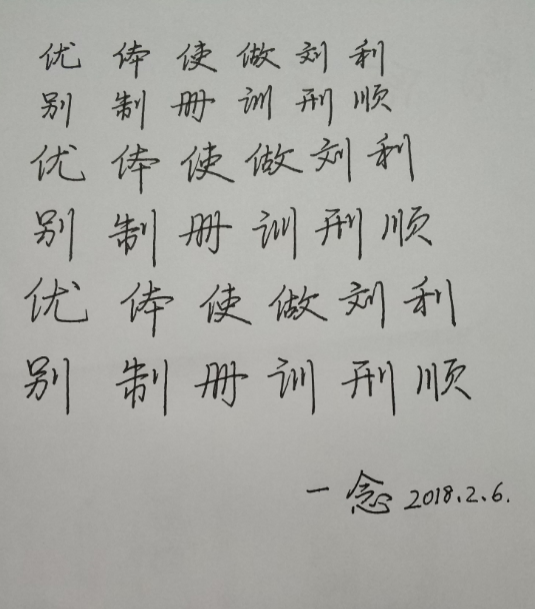 优体使做刘利
别制册训刑顺
优体使做刘利
别制册训刑顺
优体使做刘利
别制册训刑顺
一念 2018.2.6.